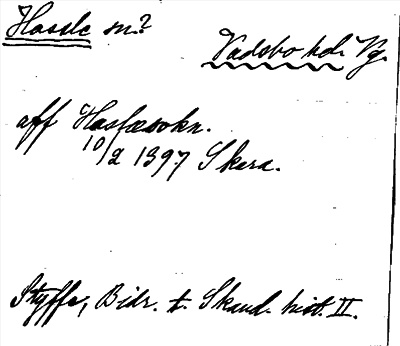 Hassle sn?
Vadsbo hd. Vg.
aff Hasslæsokn.
10/2 1397 Skara.
Styffe, Bidr. t. Skand. hist. II.